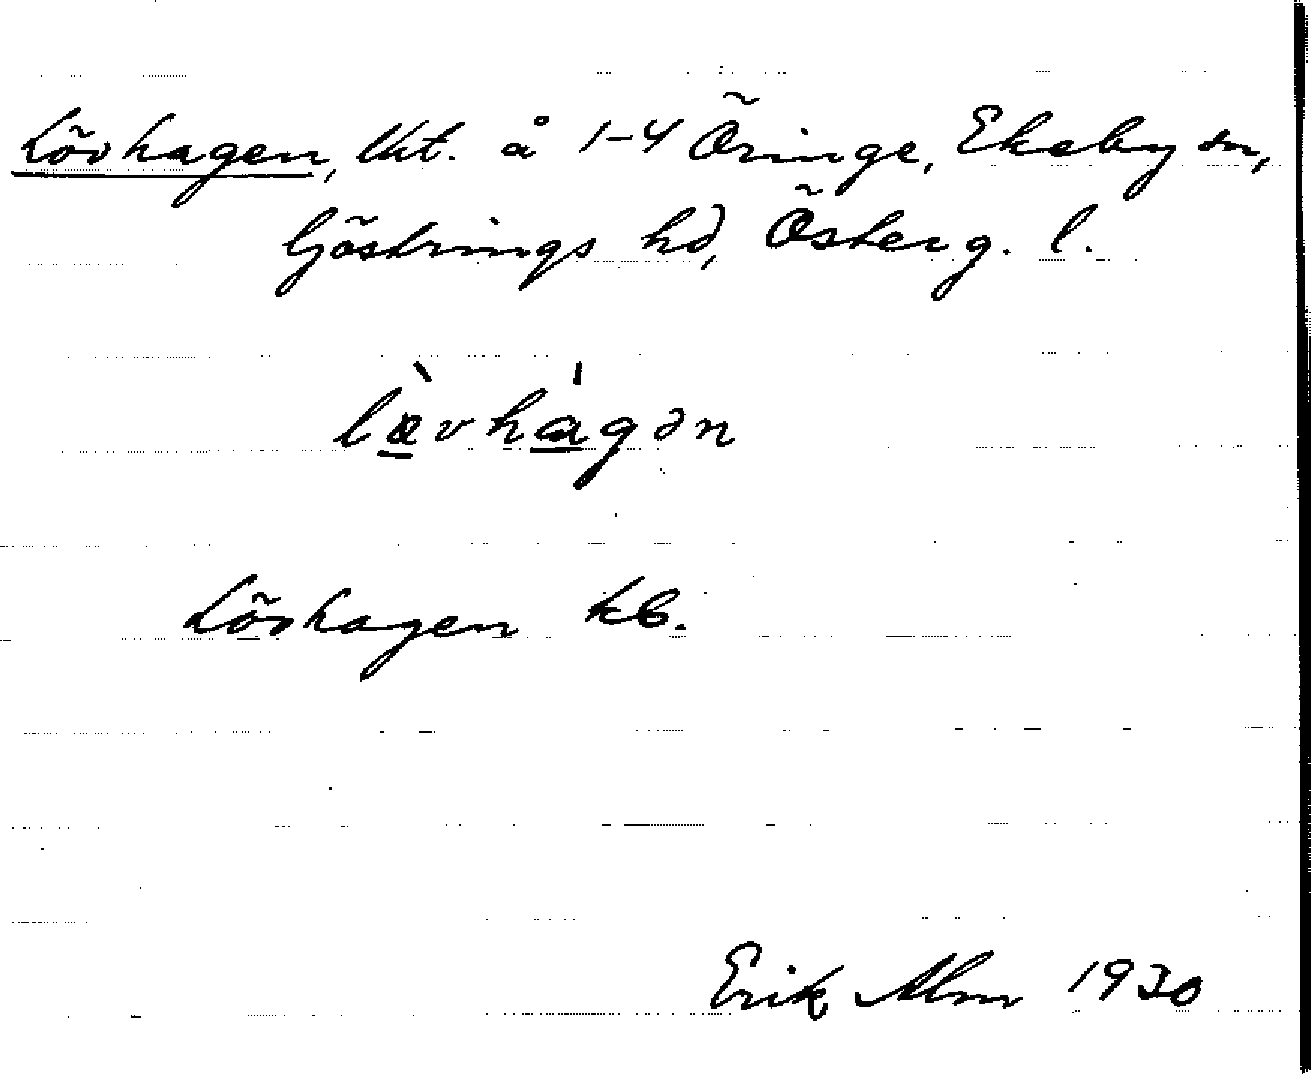 Lövhagen, lht. å 1-4 Öringe, Ekeby sn,
Göstrings hd, Österg. l.
lævhagən
Lövhagen kb.
Erik Alm 1930